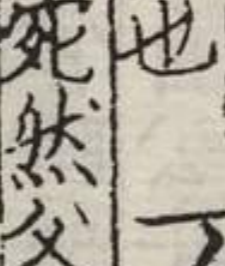 也
死然父